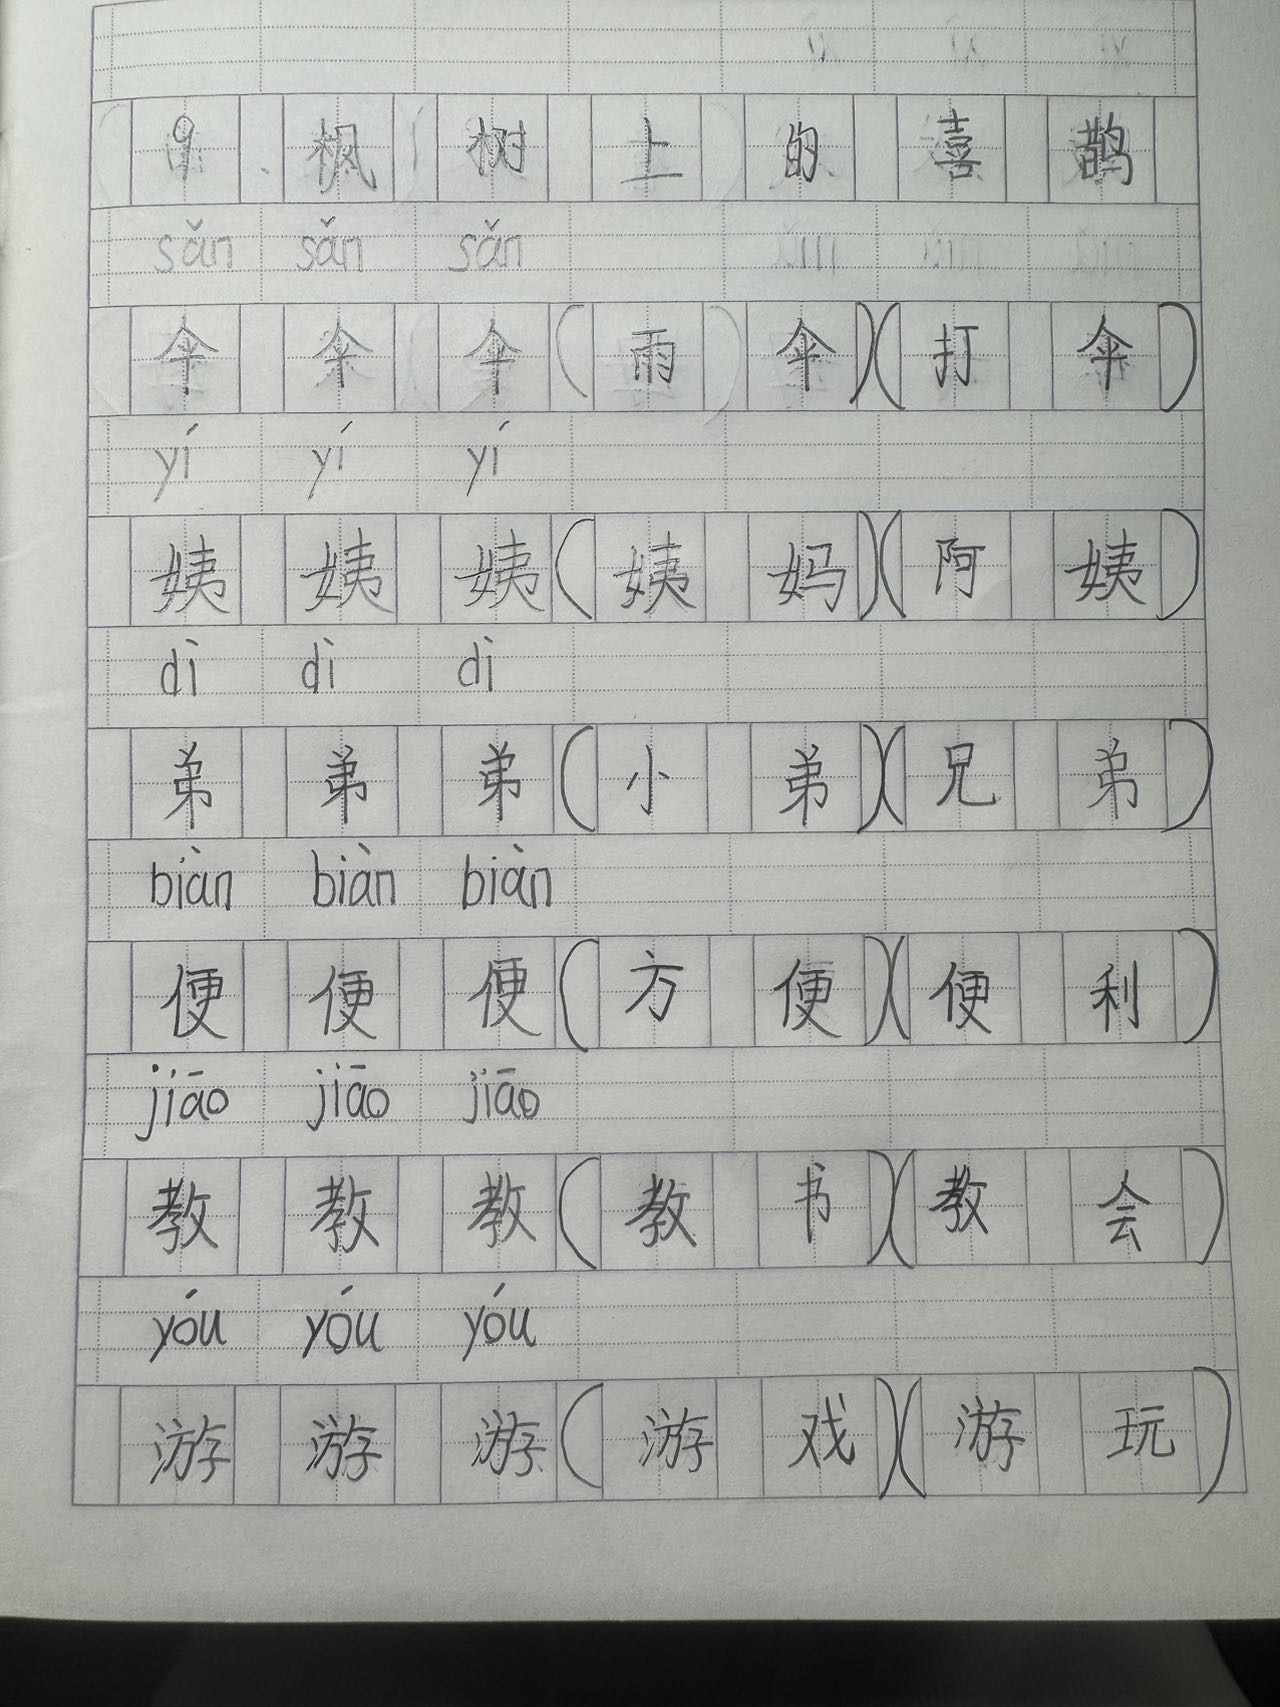 9 枫树上的喜鹊
sǎn sǎn sǎn
伞 伞 伞 (雨伞)(打伞)
yí yí yí
姨 姨 姨 (姨妈)(阿姨)
dì dì dì
弟 弟 弟 (小弟)(兄弟)
biàn biàn biàn
便 便 便 (方便)(便利)
jiāo jiāo jiāo
教 教 教 (教书)(教会)
yóu yóu yóu
游 游 游 (游戏)(游玩)